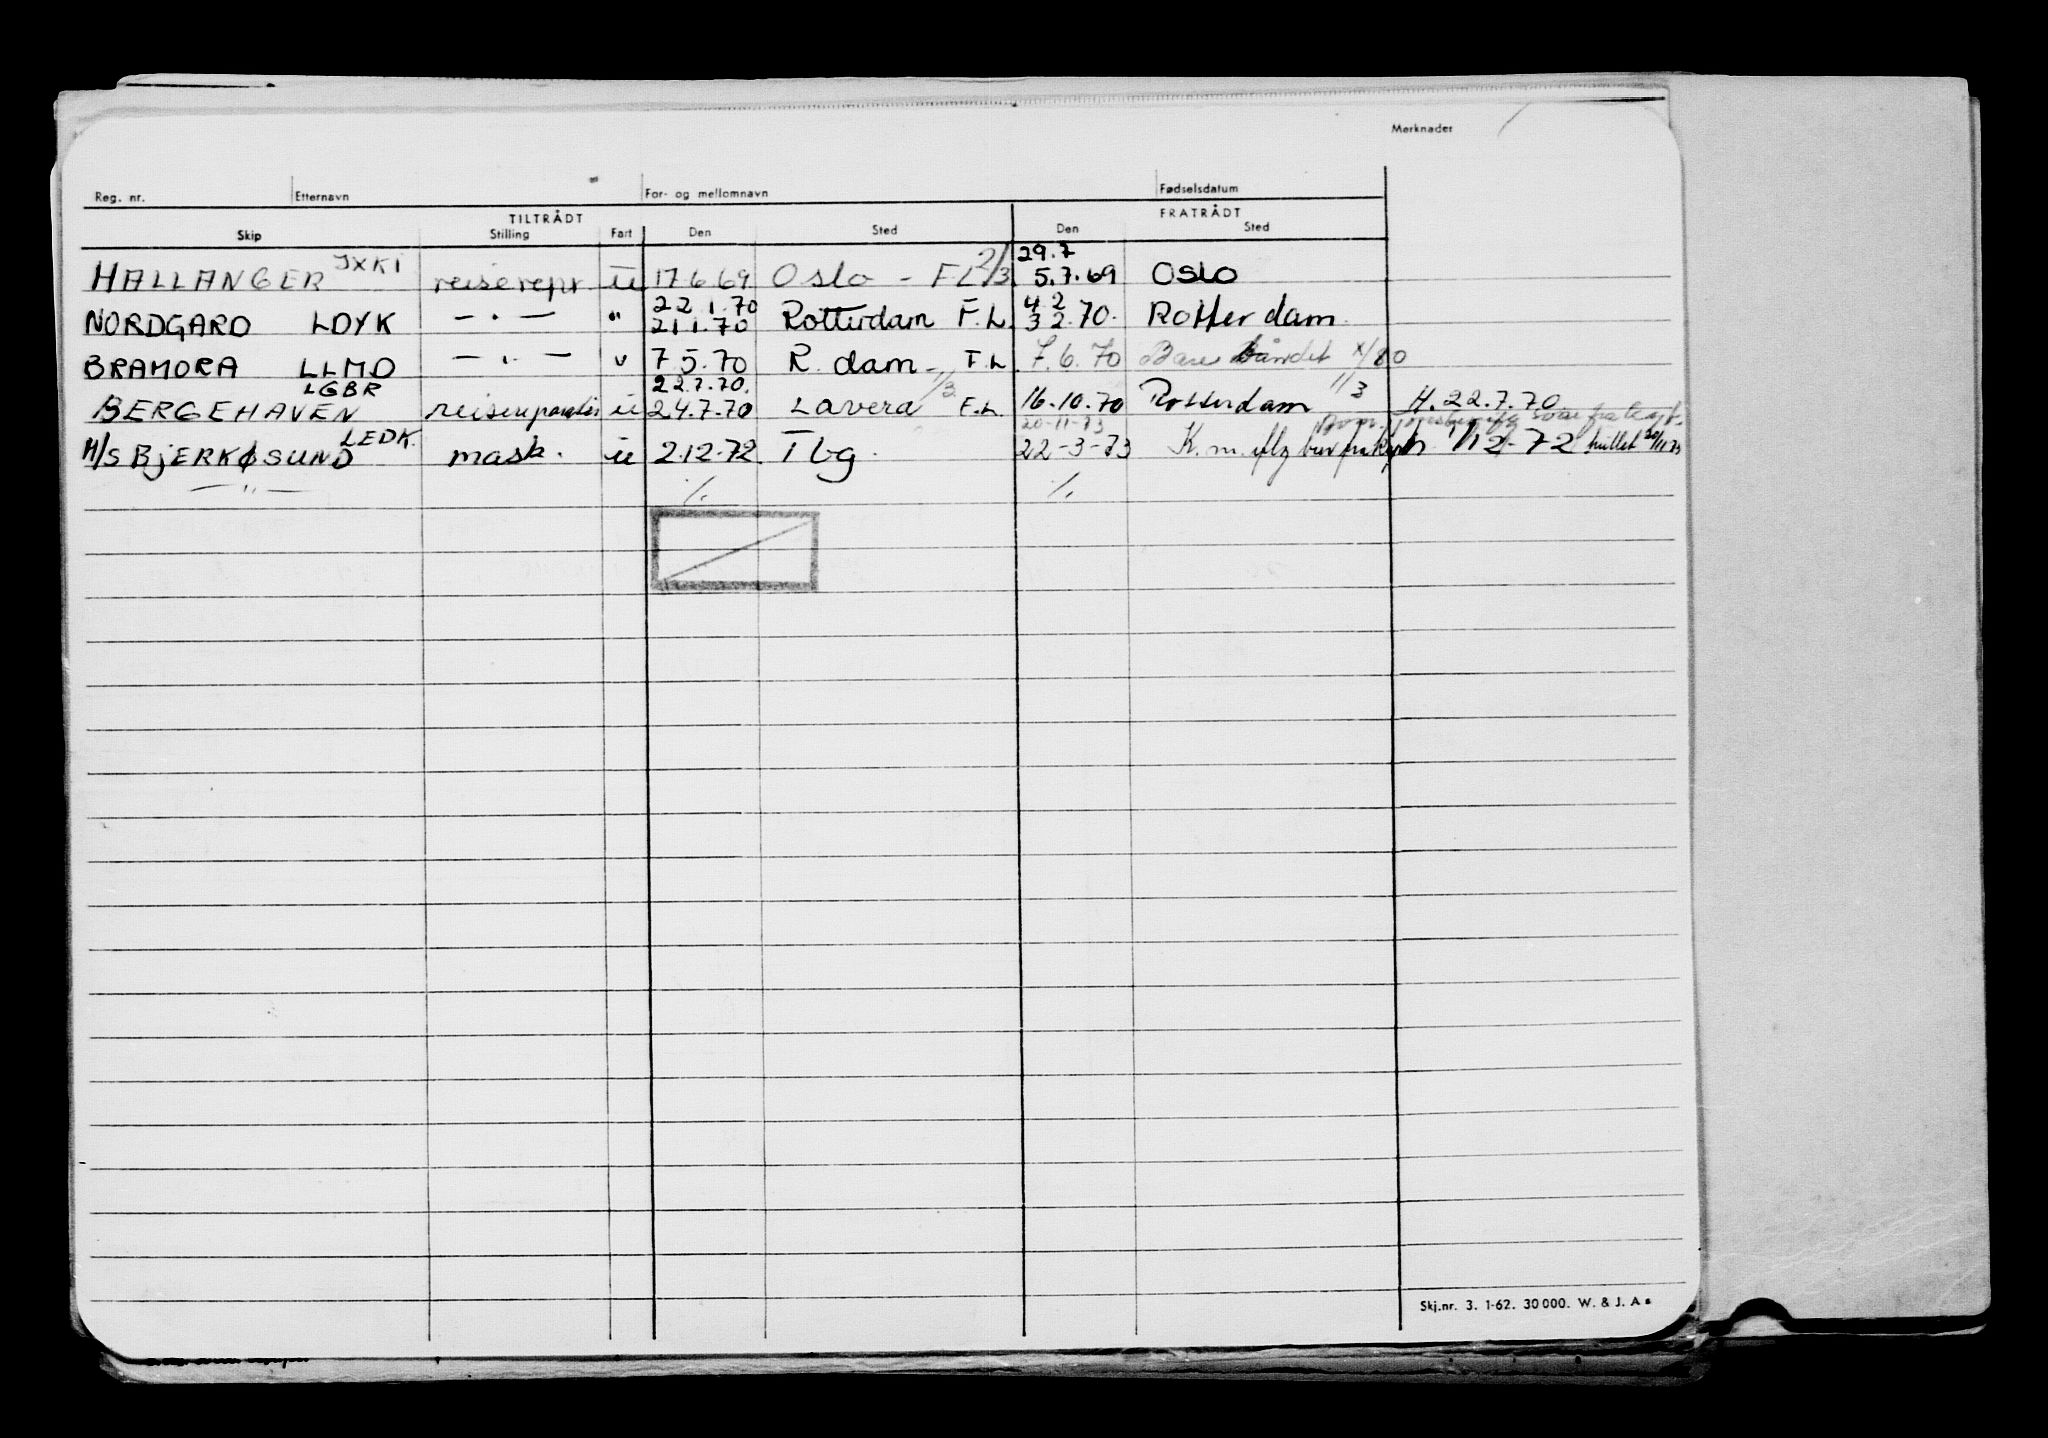 Merknader
Reg. nr. Etternavn For- og mellomnavn Fødselsdatum
TILTRÅDT FRATRÅDT
Skip Stilling Fart Den Sted Den Sted
29.7
HALLANGER JXKI reiserepr. u 17.6.69 Oslo - F.L. 2/3 5.7.69 Oslo
22.1.70 4 2
NORDGARD LDYK — . — " 21.1.70 Rotterdam F.L. 3 2.70. Rotterdam
BRAMORA LLMD — . — " 7.5.70 R.dam F.L. 7.6.70 Bare båndet x/80
LGBR 22.7.70. 1/3 1/3
BERGEHAVEN reisereparatør u 24.7.70 Lavera F.L. 16.10.70 Rotterdam H. 22.7.70
20-11-73
M/S BJERKØSUND LEDK. mask. u 2.12.72 Tbg. 22-3-73 K.m. 1/12-72 hullet 20/11 73
— " — ./. ./.
Skj.nr. 3. 1-62. 30000. W. & J. As